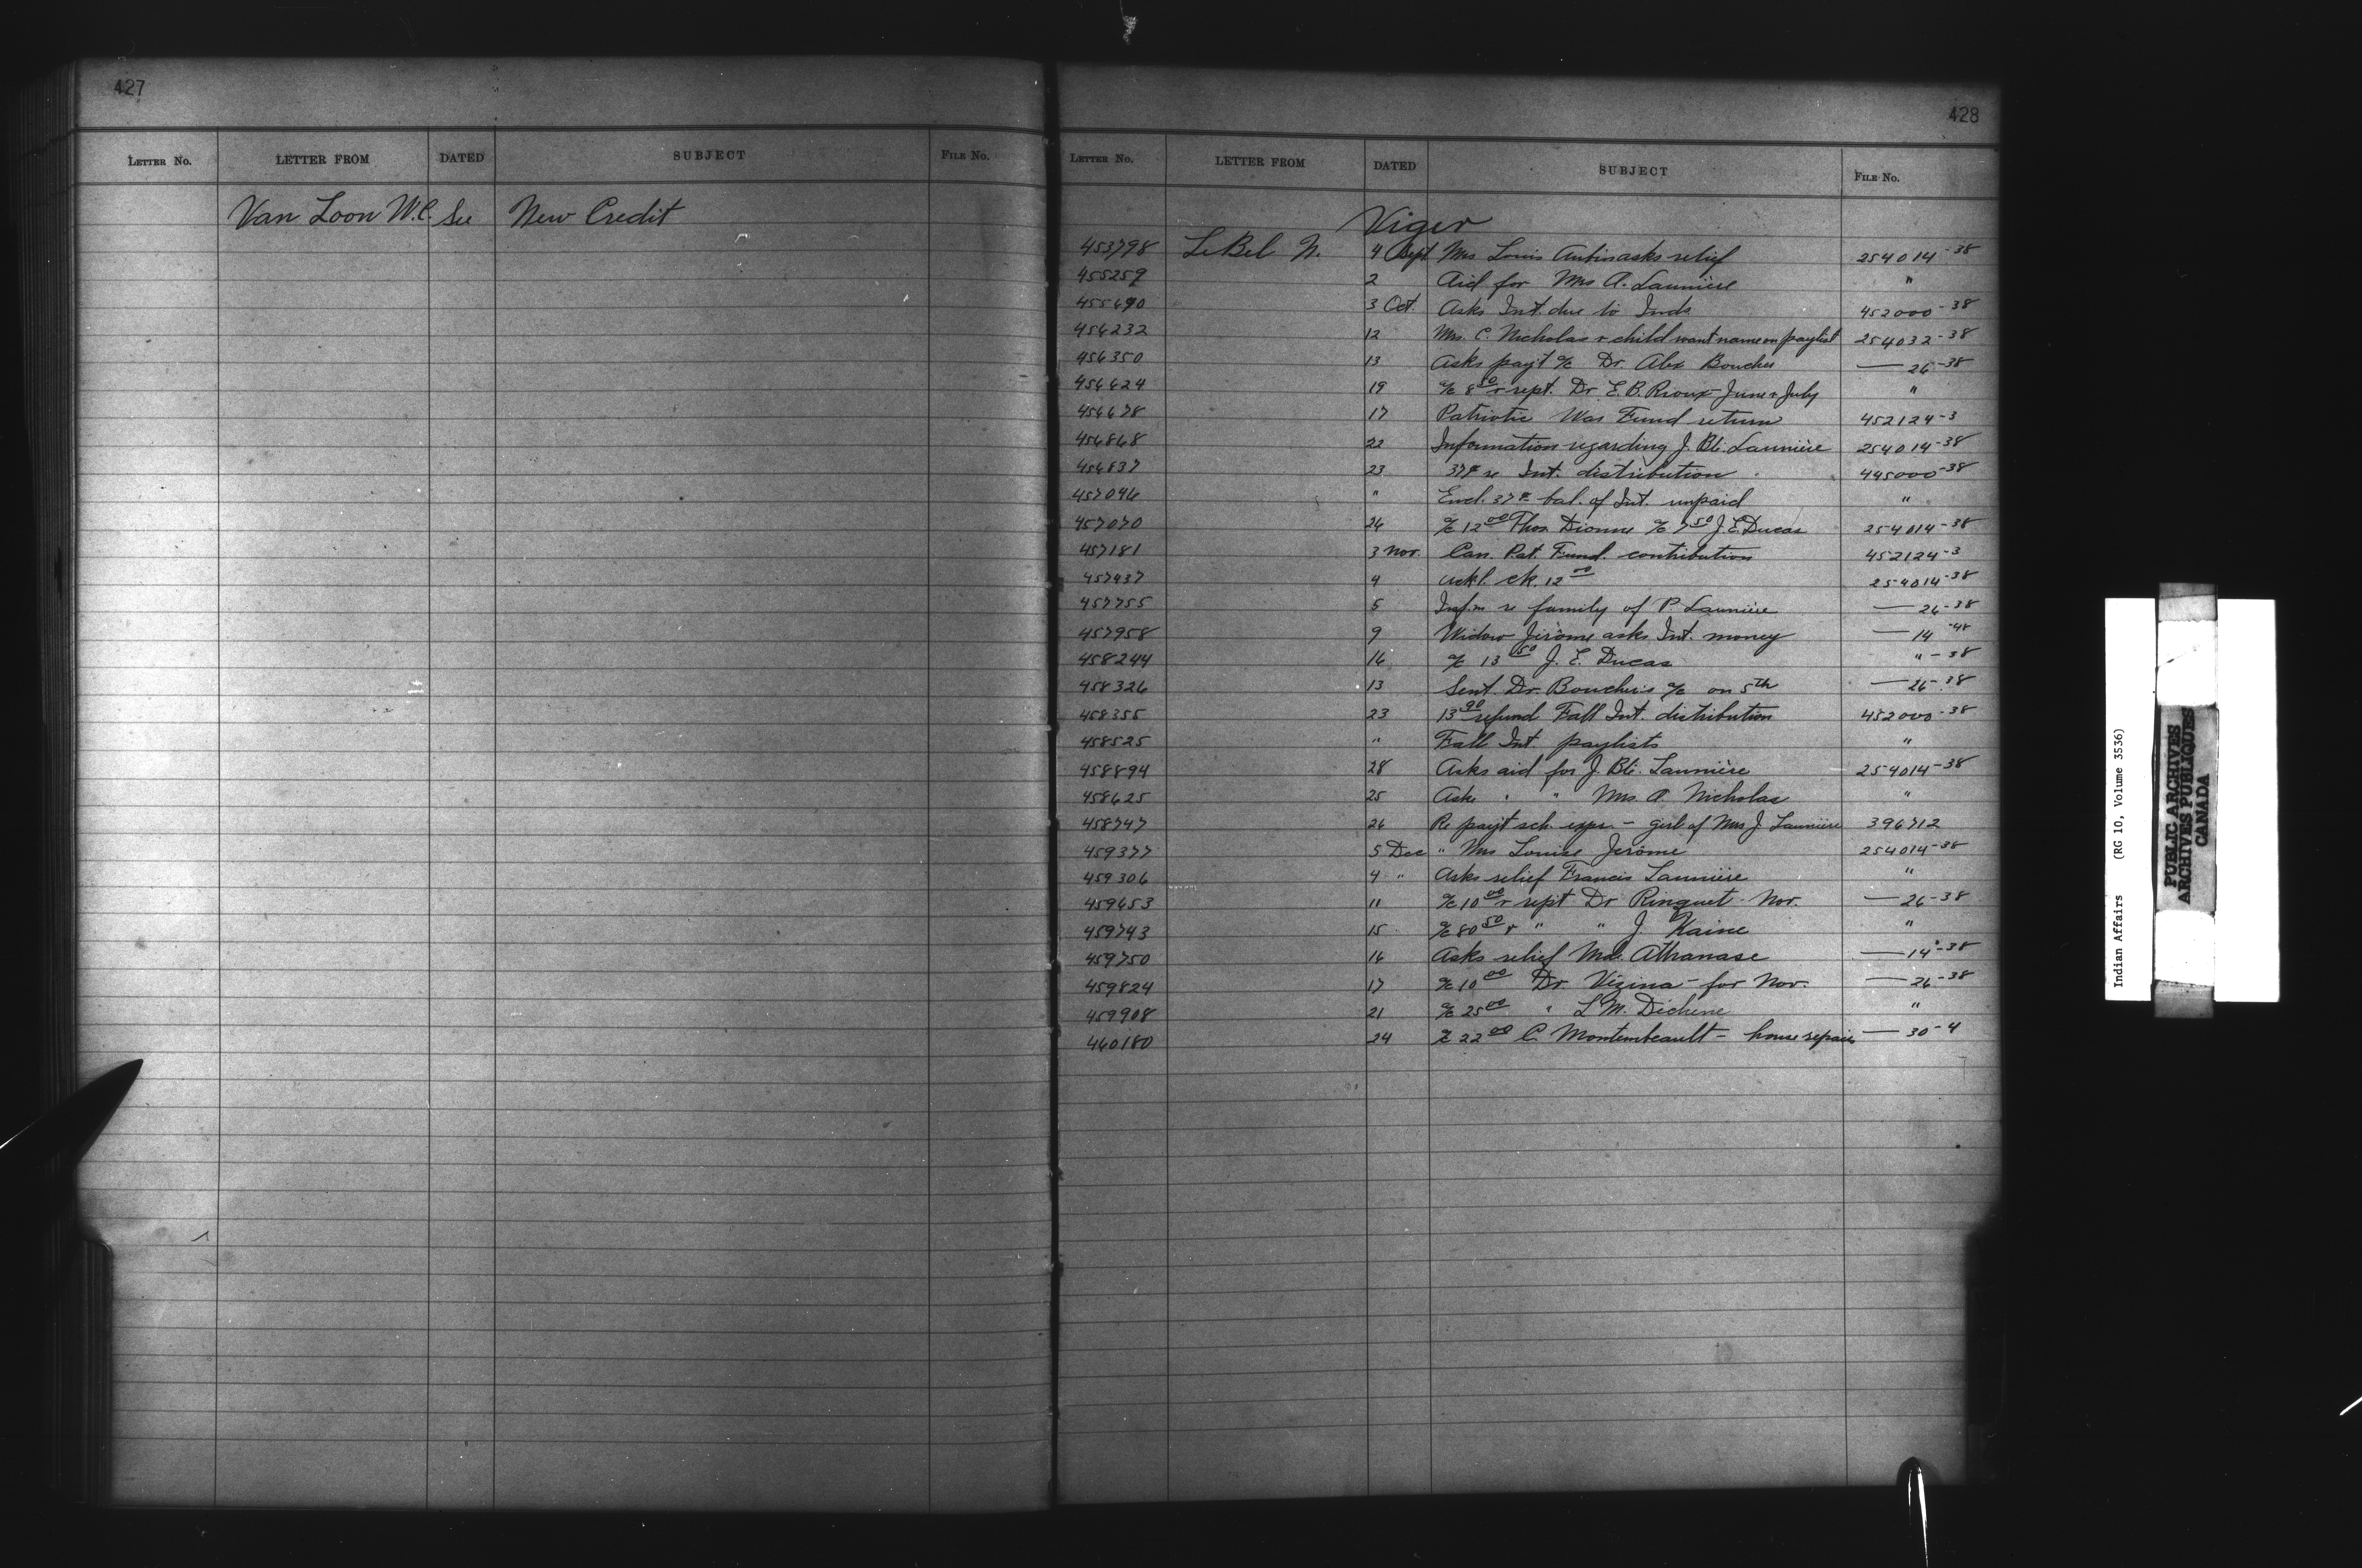 427
LETTER No. LETTER FROM DATED SUBJECT FILE No.
Van Loon W.C. See New Credit
428
LETTER No. LETTER FROM DATED SUBJECT FILE No.
Viger
453798 LeBel N. 4 Sept Mrs Louis Aubin asks relief 254014-38
455259 2 Aid for Mrs A. Launière "
455690 3 Oct. Asks Int. due to Inds. 452000-38
456232 12 Mrs. C. Nicholas & child want name on paylist 254032-38
456350 13 Asks pay't a/c Dr. Alex Boucher — 26-38
456624 19 a/c 8 50 & rept. Dr E.B. Rioux - June & July "
456678 17 Patriotic War Fund return 452124-3
456868 22 Information regarding J. Bte. Launière 254014-38
456837 23 37¢ re Int. distribution 445000-38
457096 " Encl. 37¢ bal. of Int. unpaid "
457070 26 a/c 12 00 Thos. Dionne a/c 7 50 J.E. Ducas 254014-38
457181 3 Nov. Can. Pat. Fund. contribution 452124-3
457437 4 Ackl. ck. 12 00 254014-38
457755 5 Inf.n re family of P. Launière — 26-38
457958 9 Widow Jérôme asks Int. money — 14-48
458244 16 a/c 13 50 J. E. Ducas "-38
458326 13 Sent Dr. Boucher's a/c on 5th — 26-38
458355 23 13 90 refund Fall Int. distribution 452000-38
458525 " Fall Int. paylists "
458894 28 Asks aid for J. Bte. Launière 254014-38
458625 25 Asks " " Mrs. A. Nicholas "
458747 26 Re pay't sch. exps. - girl of Mrs J. Launière 396712
459377 5 Dec " Mrs Louise Jerôme 254014-38
459306 4 " Asks relief Francis Launière "
459653 11 a/c 10 00 & rept Dr Ringuet - Nov. — 26-38
459743 15 a/c 80 50 & " " J. Kaine "
459750 16 Asks relief Mde. Athanase — 14-38
459824 17 a/c 10 00 Dr Vézina - for Nov. — 26-38
459908 21 a/c 25 00 " L.M. Dechene "
460180 24 a/c 22 00 C. Montembeault - house repairs — 30-4
Indian Affairs (RG 10, Volume 3536)
PUBLIC ARCHIVES
ARCHIVES PUBLIQUES
CANADA